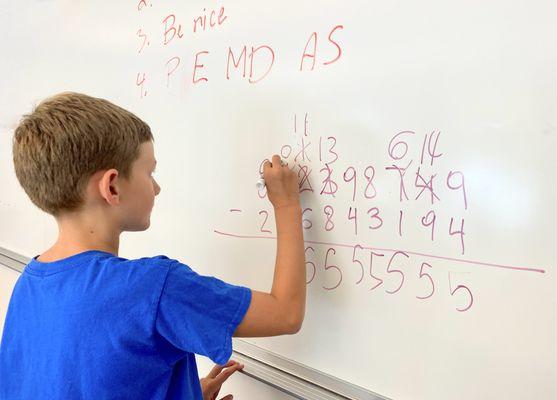 2.
3. Be nice
4. PEMDAS
11
13 6 14
2 3 9 8 7 4 9
- 2 6 8 4 3 1 9 4
5 5 5 5 5 5 5